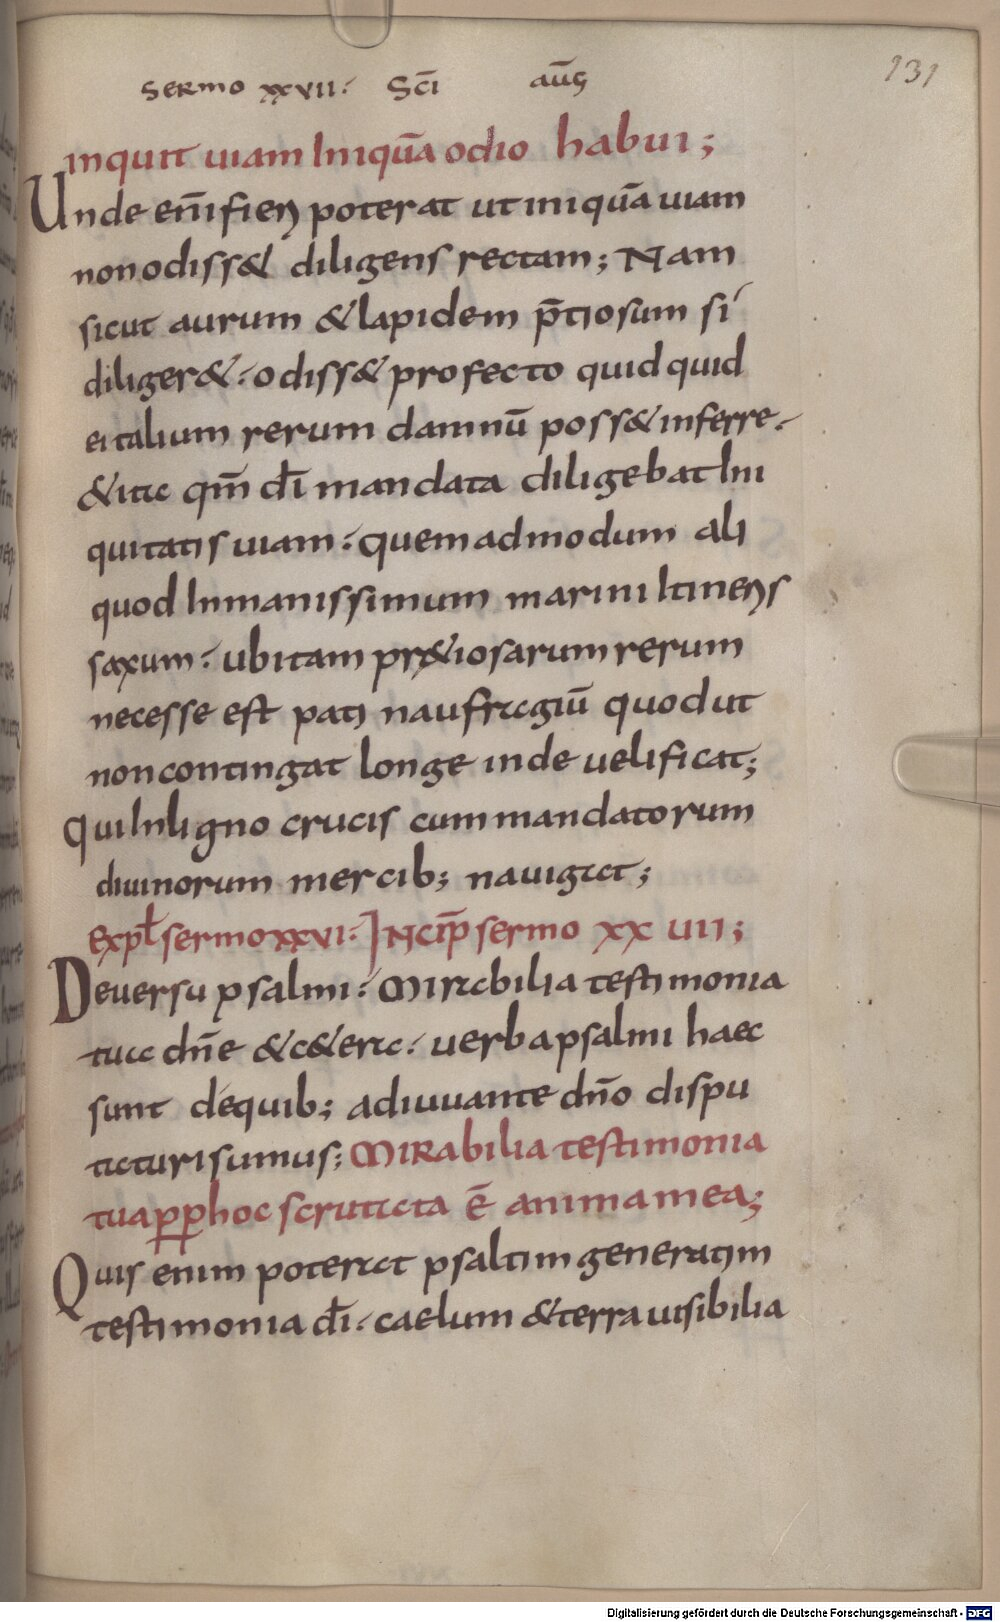 sermo xxvii· sc̄i aūg
131
inquit uiam iniquā odio habui;
Unde eni̅ fieri poterat ut iniquā uiam
non odiss& diligens rectam; Nam
sicut aurum & lapidem p̄tiosum si
diliger&· odiss& profecto quid quid
ei talium rerum damnū poss& inferre·
& ita qm̄ dī mandata diligebat ini
quitatis uiam· quem ad modum ali
quod inmanissimum marini itineris
saxum· ubi tam pr&iosarum rerum
necesse est pati naufragiū quod ut
non contingat longe inde uelificat;
qui in ligno crucis cum mandatorum
diuinorum mercib; nauigat;
expl̄ sermo xxvi· INcip̄ sermo xx uii;
De uersu psalmi· Mirabilia testimonia
tua dn̄e & c&era· uerba psalmi haec
sunt de quib; adiuuante dn̄o dispu
taturi sumus; MIRabilia testimonia
tua pp hoc scrutata ē anima mea;
Quis enim poterat psaltim generatim
testimonia dī· caelum & terra uisibilia
Digitalisierung gefördert durch die Deutsche Forschungsgemeinschaft - DFG